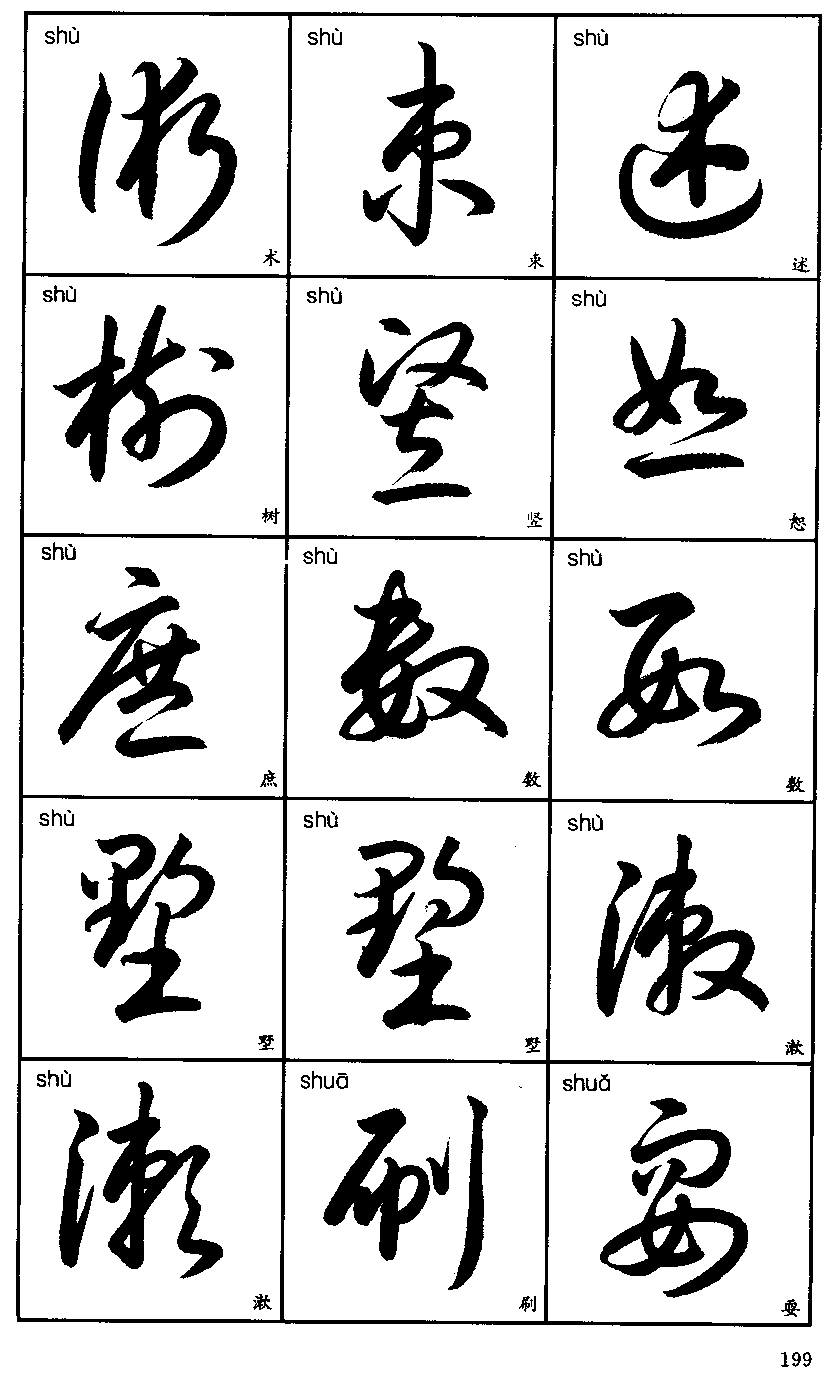 shù shù shù
术 束 述
shù shù shù
树 竖 恕
shù shù shù
庶 数 数
shù shù shù
墅 墅 漱
shù shuā shuǎ
漱 刷 耍
199